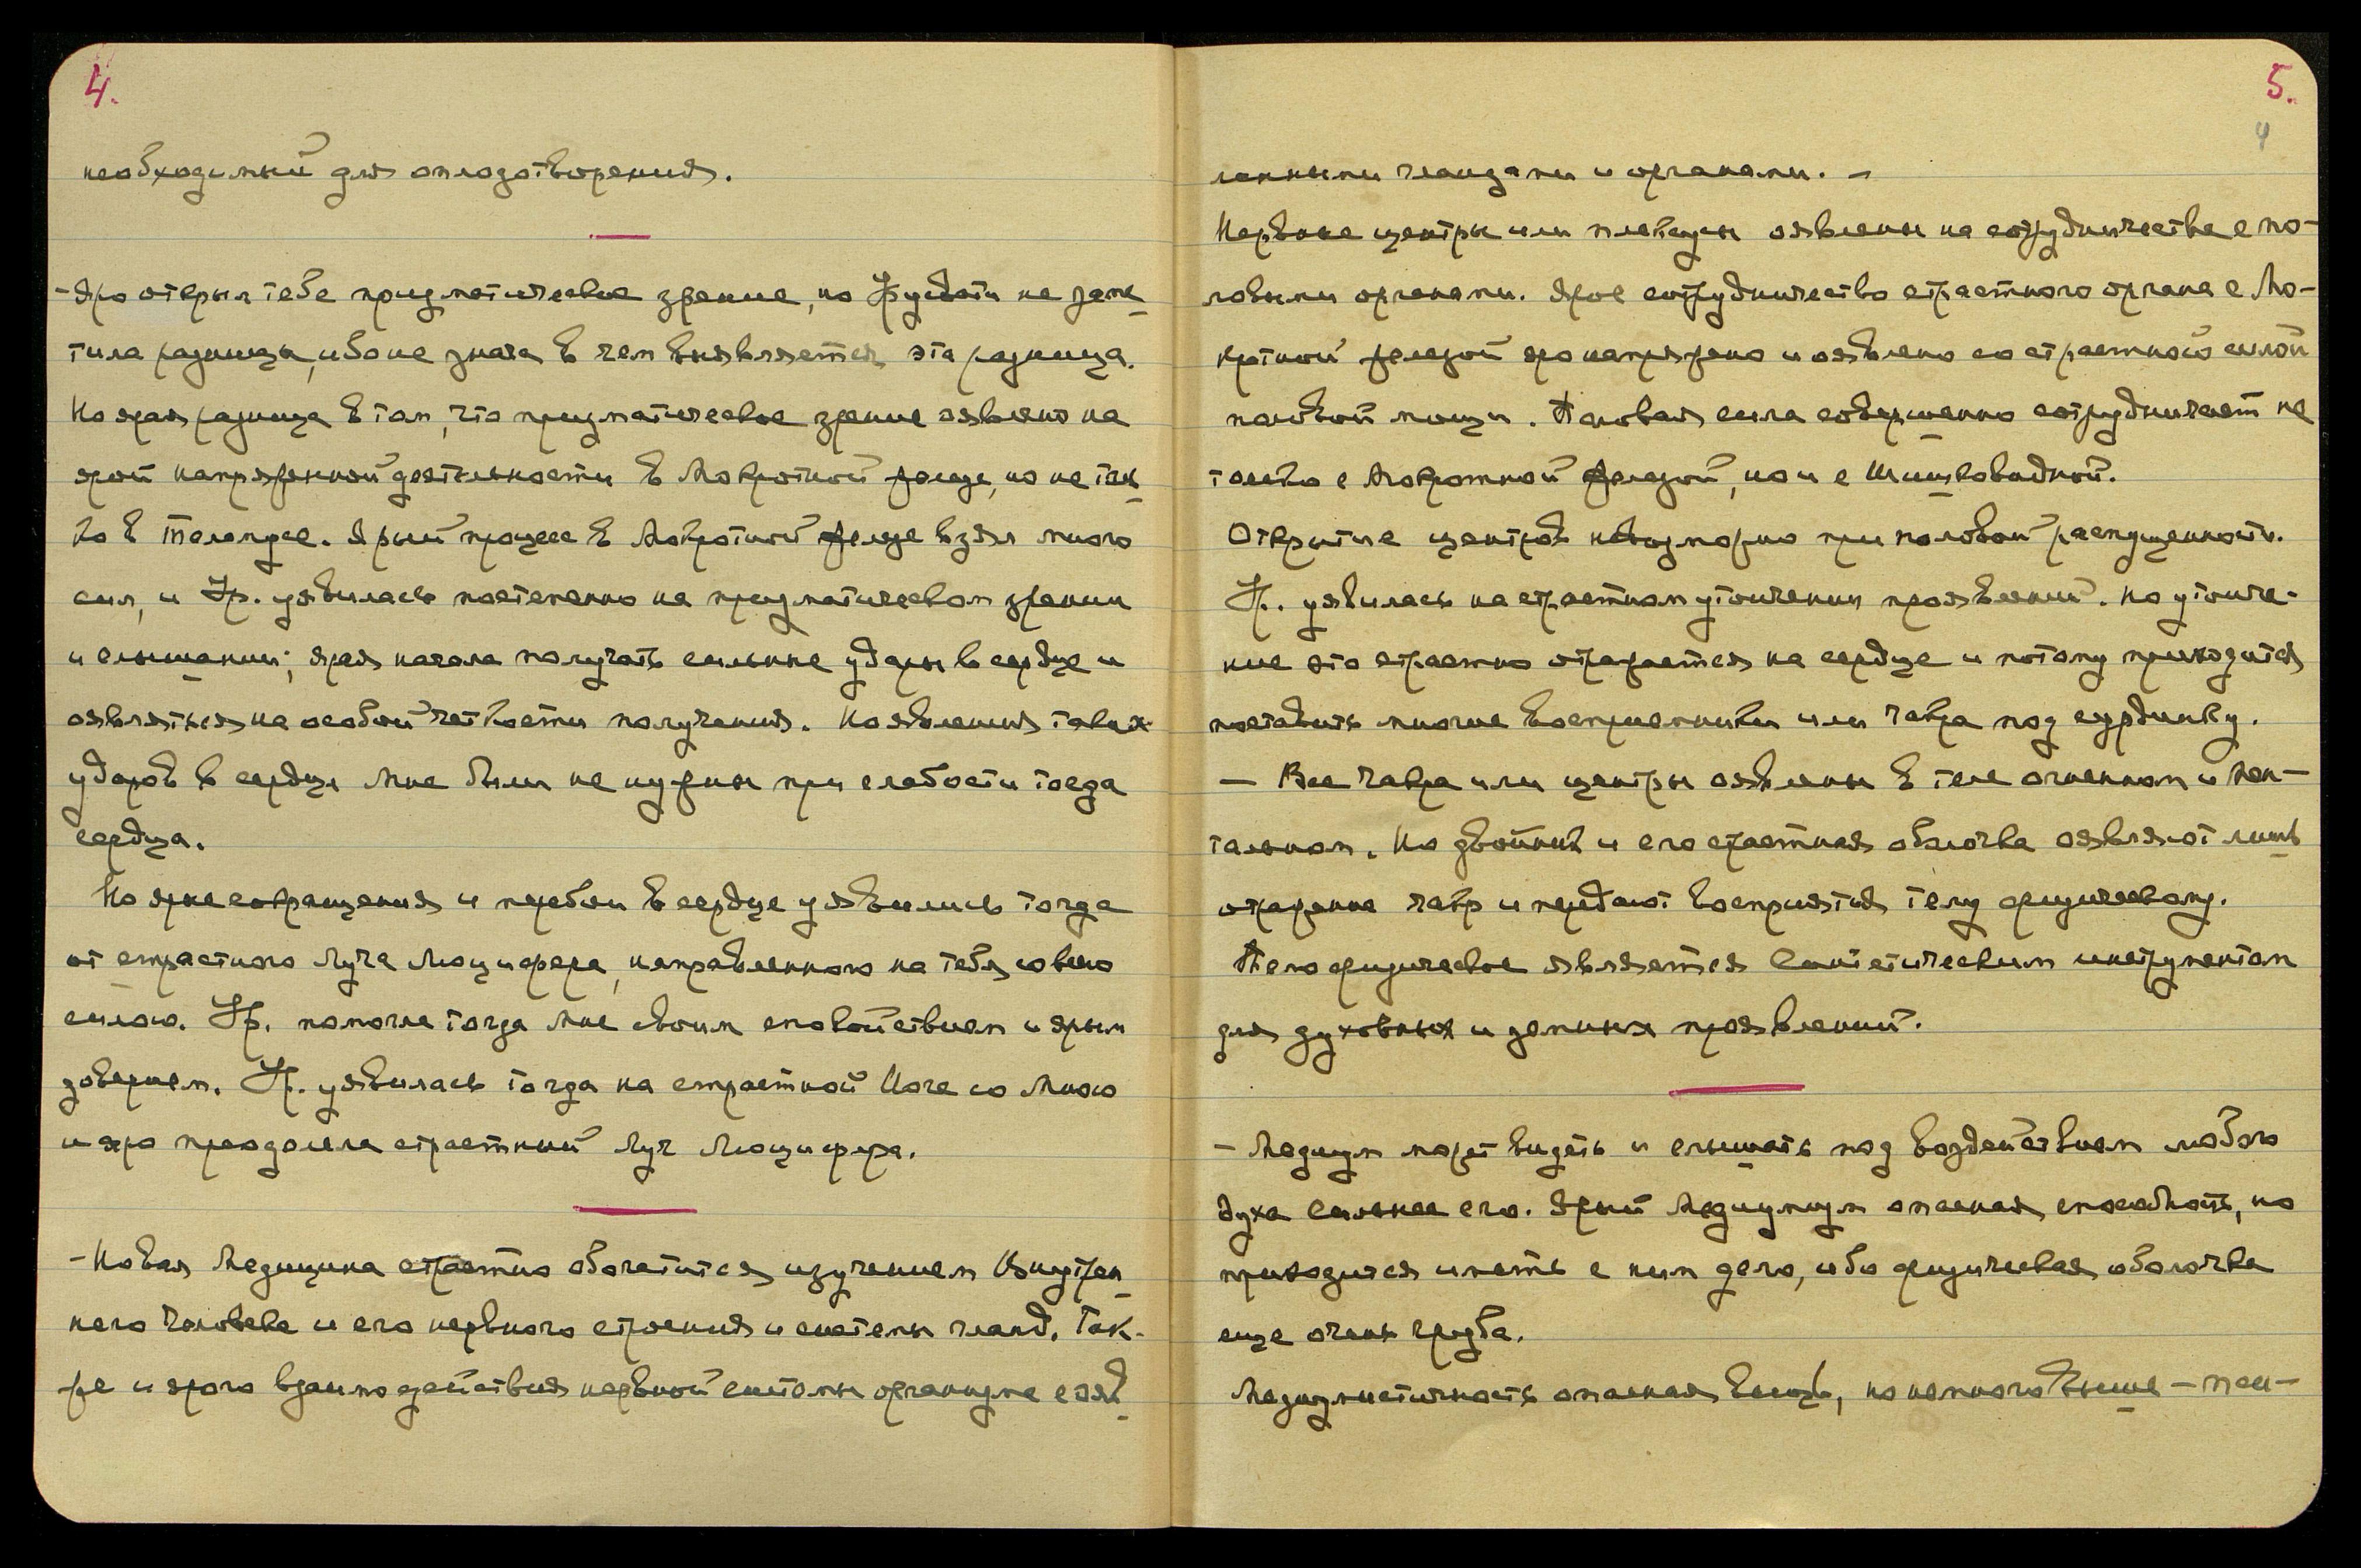 4.
необходимый для оплодотворения.
- Яро открыл тебе призматическое зрение, но Урусвати не заме-
тила разницы, ибо не знала в чем выявляется эта разница.
Но ярая разница в том, что призматическое зрение оявлено на
ярой напряженной деятельности в Мокротной железе, но не толь-
ко в Таламусе. Ярый процесс в Мокротной железе взял много
сил, и Ур. уявилась постепенно на призматическом зрении
и слышании; ярая начала получать сильные удары в сердце и
оявляться на особой четкости получения. Но явления таких
ударов в сердце Мне были не нужны при слабости тогда
сердца.
Но ярые сокращения и перебои в сердце уявились тогда
от страстного Луча Люцифера, направленного на тебя со всею
силою. Ур. помогла тогда Мне своим спокойствием и ярым
доверием. Ур. уявилась тогда на страстной Йоге со Мною
и яро преодолела страстный Луч Люцифера.
- Новая Медицина страстно обогатится изучением Внутрен-
него Человека и его нервного строения и системы гланд. Так-
же и ярого взаимодействия нервной системы организма с ояв-
5.
4
ленными гландами и органами. -
Нервные центры или плексусы оявлены на сотрудничестве с по-
ловыми органами. Ярое сотрудничество страстного органа с Мо-
кротной железой яро напряжено и оявлено со страстной силой
половой мощи. Половая сила совершенно сотрудничает не
только с Мокротной железой, но и с Шишковидной.
Открытие центров невозможно при половой распущенности.
Ур. уявилась на страстном утончении проявлений. Но утонче-
ние это страстно отражается на сердце и потому приходится
поставить многие восприемники или чакры под сурдинку.
- Все чакры или центры оявлены в теле огненном и Мен-
тальном. Но двойник и его страстная оболочка оявляют лишь
отражение чакр и передают восприятия телу физическому.
Тело физическое является Синтетическим инструментом
для духовных и земных проявлений.
- Медиум может видеть и слышать под воздействием любого
духа сильнее его. Ярый Медиумизм опасная способность, но
приходится иметь с ним дело, ибо физическая оболочка
еще очень груба.
Медиумистичность опасная вещь, но немного выше - пси-